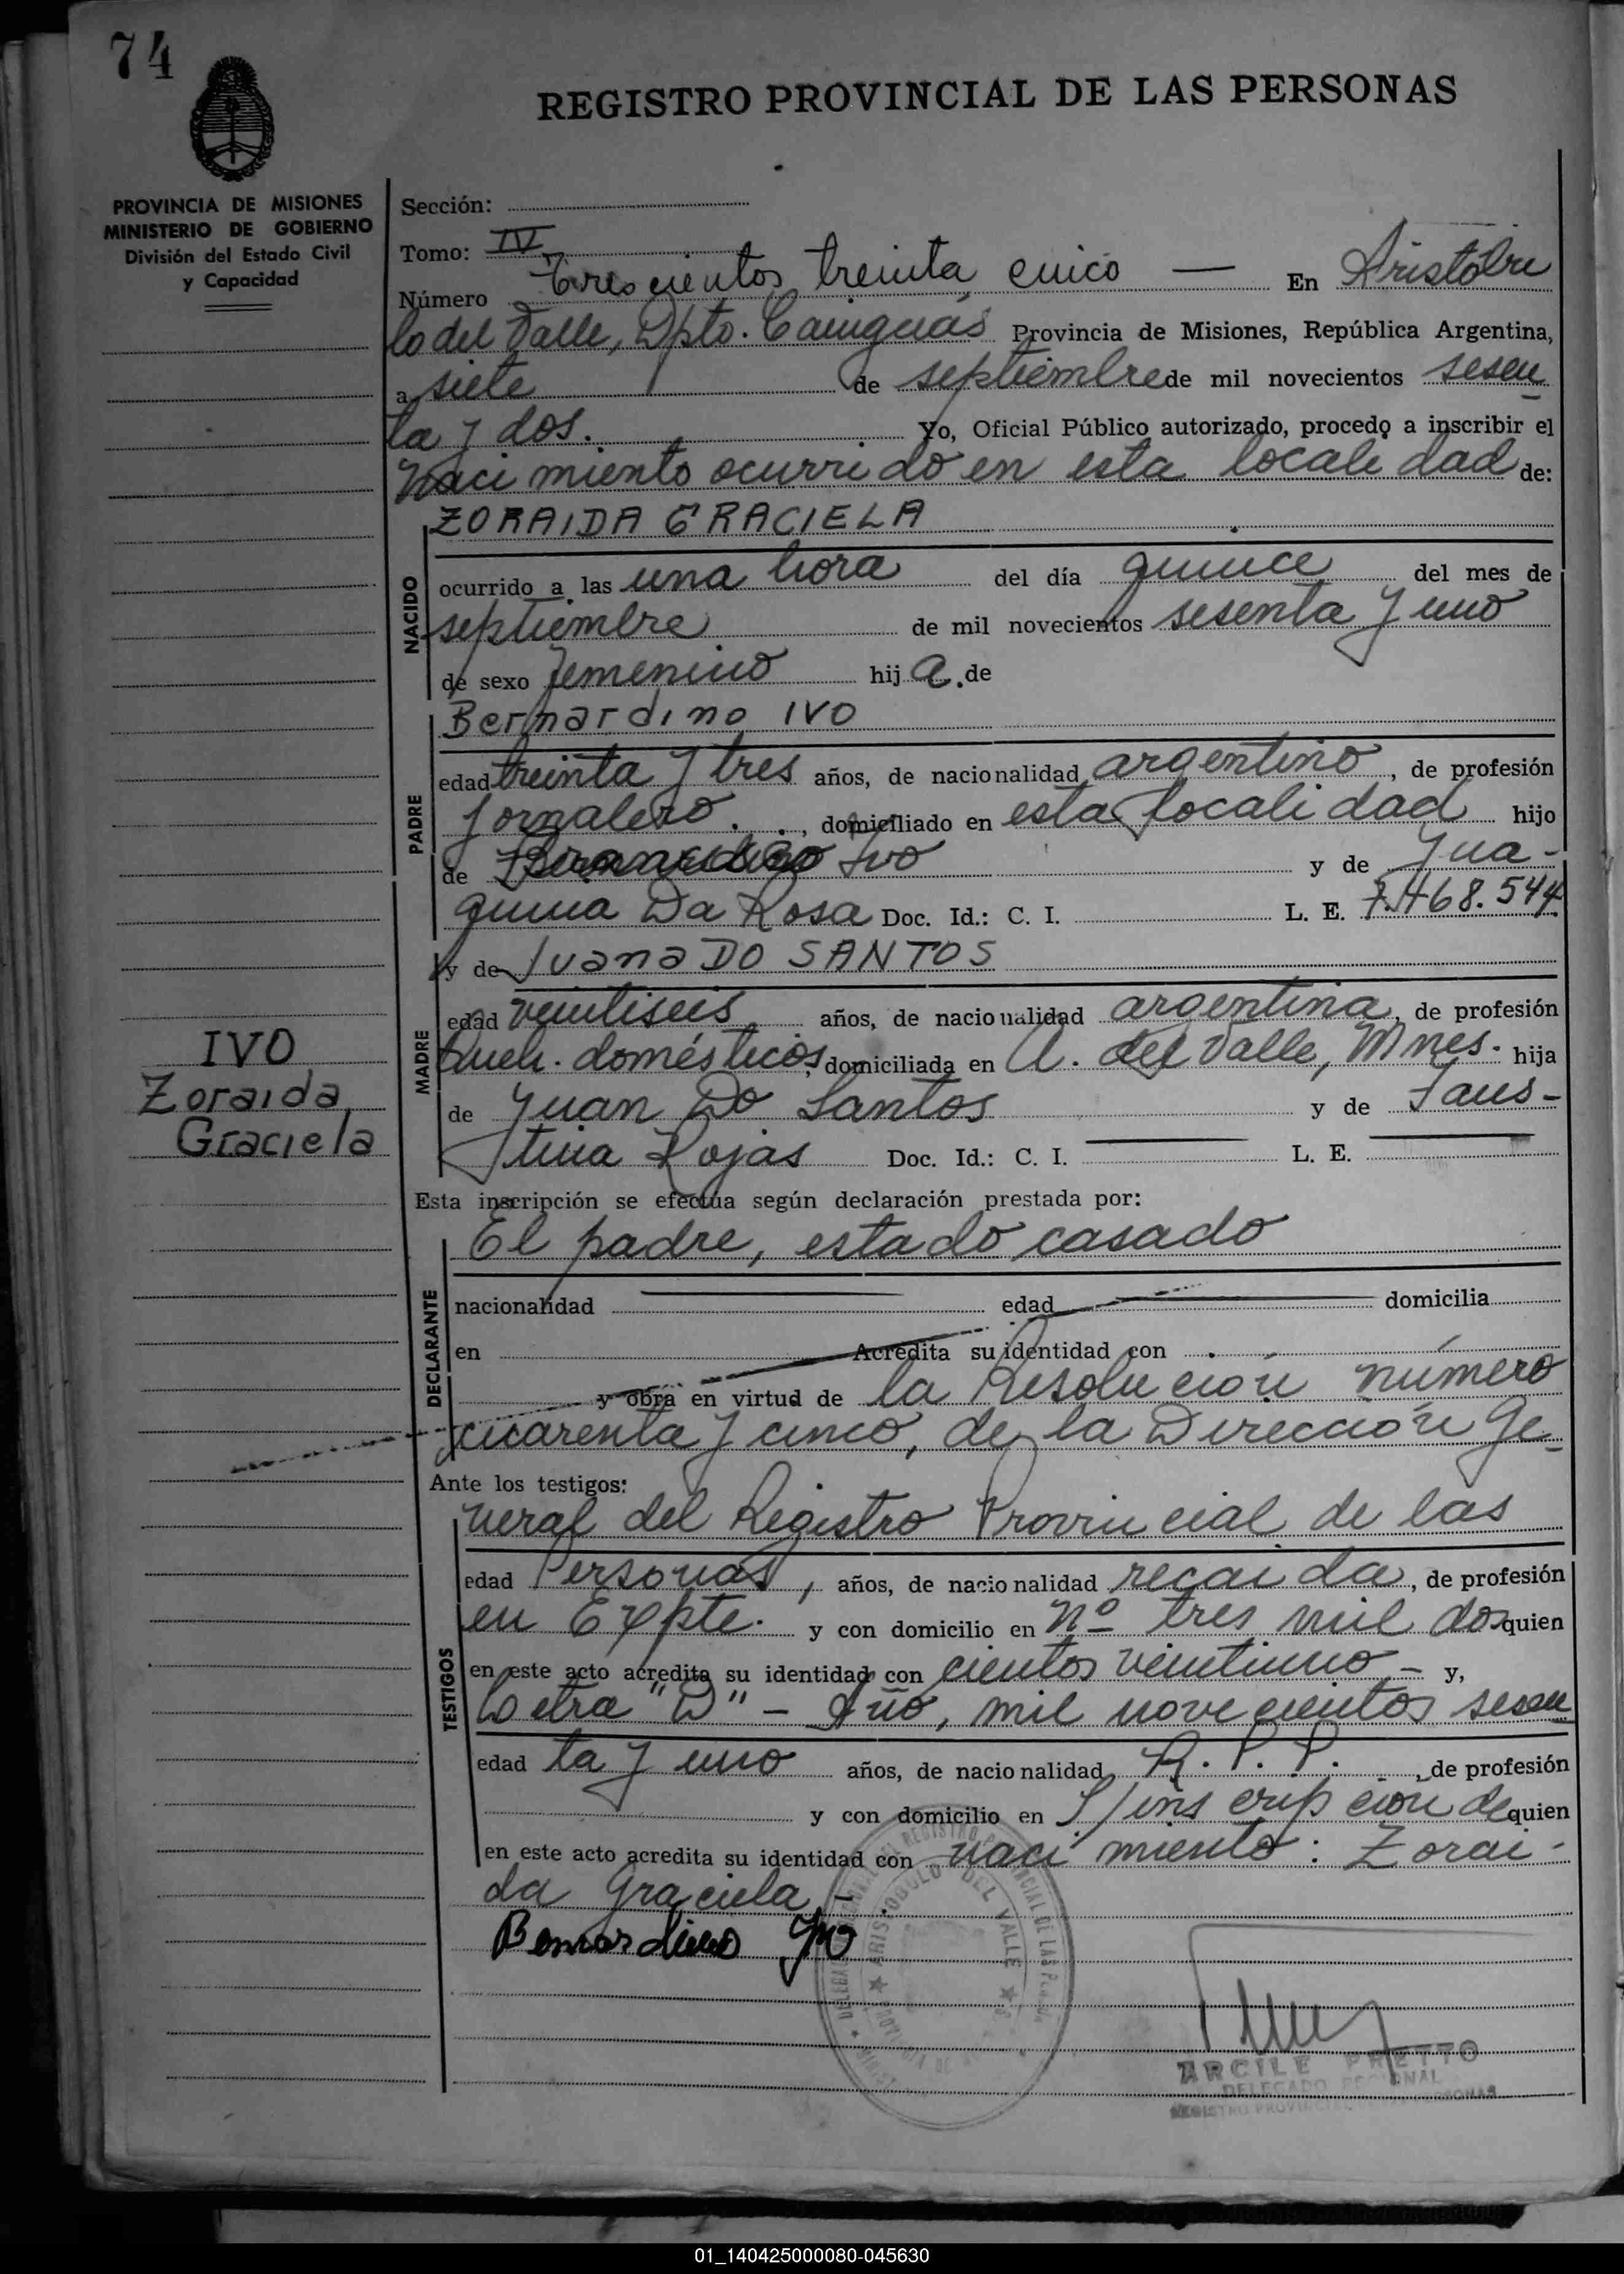 74
REGISTRO PROVINCIAL DE LAS PERSONAS
PROVINCIA DE MISIONES
MINISTERIO DE GOBIERNO
División del Estado Civil
y Capacidad
Sección:
Tomo: IV
Número Trescientos treinta cinco — En Aristóbu
lo del Valle, Dpto. Cainguás Provincia de Misiones, República Argentina,
a siete de septiembre de mil novecientos sesen
ta y dos. Yo, Oficial Público autorizado, procedo a inscribir el
Nacimiento ocurrido en esta localidad de:
NACIDO
ZORAIDA GRACIELA
ocurrido a las una hora del día quince del mes de
septiembre de mil novecientos sesenta y uno
de sexo femenino hij a. de
PADRE
Bernardino IVO
edad treinta y tres años, de nacionalidad argentino, de profesión
jornalero. . , domiciliado en esta localidad hijo
de Ivo y de Jua-
quina Da Rosa Doc. Id.: C. I. L. E. 7.468.544
MADRE
y de Juana DO SANTOS
edad veintiseis años, de nacionalidad argentina, de profesión
Queh. domésticos, domiciliada en A. del Valle, Mnes. hija
de Juan Do Santos y de Faus-
tina Rojas Doc. Id.: C. I. — L. E. —
IVO
Zoraida
Graciela
Esta inscripción se efectúa según declaración prestada por:
DECLARANTE
El padre, estado casado
nacionalidad — edad — domicilia
en Acredita su identidad con
y obra en virtud de la Resolución número
cuarenta y cinco, de la Dirección Ge-
Ante los testigos:
TESTIGOS
neral del Registro Provincial de las
edad Personas, años, de nacionalidad recaida, de profesión
en Expte. y con domicilio en Nº tres mil dos quien
en este acto acredita su identidad con cientos veintiuno - y,
Letra "D" - Año, mil novecientos sesen
edad ta y uno años, de nacionalidad R. P. P. , de profesión
y con domicilio en S/inscripcion de quien
en este acto acredita su identidad con nacimiento: Zorai-
da Graciela -
Bernardino Ivo
ARISTOBULO DEL VALLE
ARCILE PRETTO
DELEGADO REGIONAL
REGISTRO PROVINCIAL DE LAS PERSONAS
01_140425000080-045630